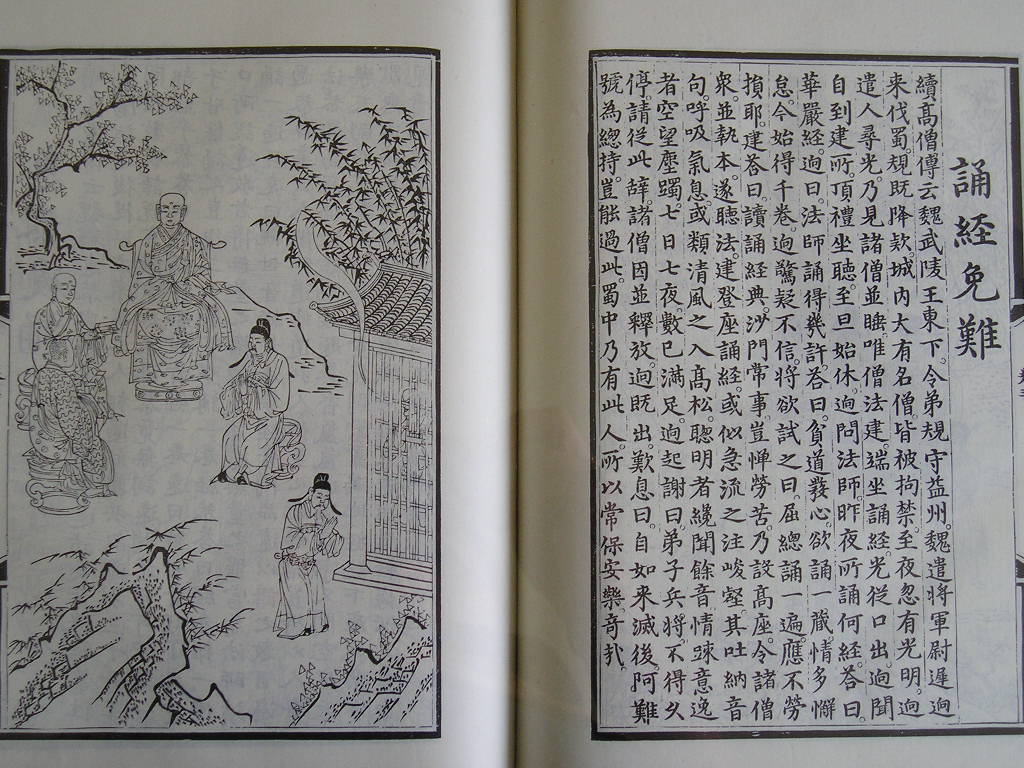 誦經免難
續高僧傳云魏武陵王東下。令弟規守益州。魏遣將軍尉遲迥
来伐蜀。規既降款。城内大有名僧。皆被拘禁。至夜忽有光明。迥
遣人尋光。乃見諸僧並睡。唯僧法建。端坐誦經。光從口出。迥聞
自到建所。頂禮坐聽。至旦始休。迥問法師。昨夜所誦何經。荅曰。
華嚴經。迥曰。法師誦得幾許。荅曰。貧道發心。欲誦一藏。情多懈
怠。今始得千卷。迥驚疑不信。將欲試之曰。屈總誦一遍。應不勞
損耶。建荅曰。讀誦經典。沙門常事。豈憚勞苦。乃設高座。令諸僧
衆。並執本。遂聽法。建登座誦經。或似急流之注峻壑。其吐納音
句。呼吸氣息。或類清風之入高松。聰明者纔聞餘音。情踈意逸
者。空望塵躅。七日七夜。數已滿足。迥起謝曰。弟子兵將。不得久
停。請從此辭。諸僧因並釋放。迥既出。歎息曰。自如来滅後。阿難
號為總持。豈能過此。蜀中乃有此人。所以常保安樂。奇哉。